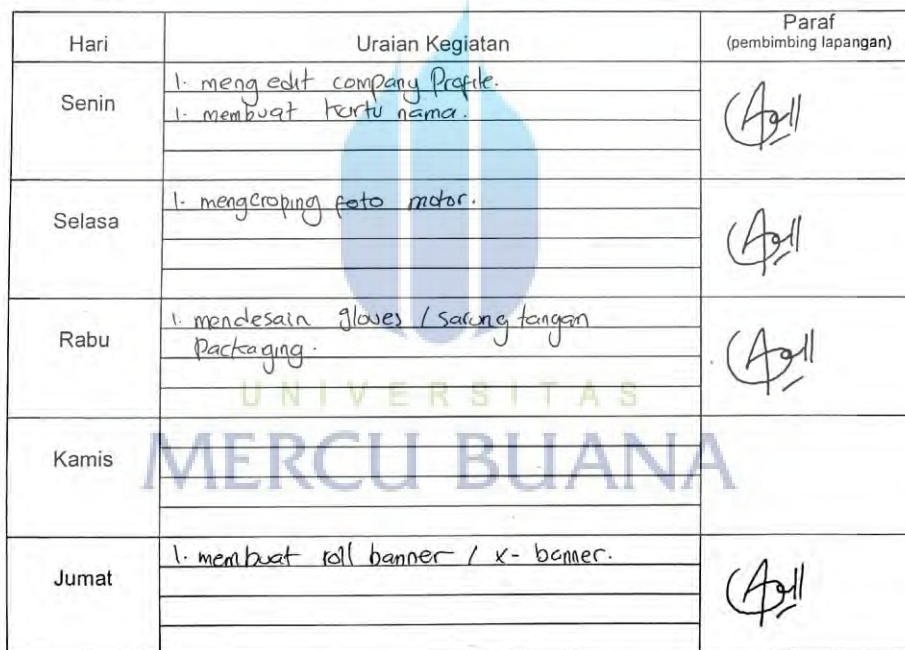 Hari Uraian Kegiatan Paraf
(pembimbing lapangan)
Senin
1. mengedit company Profile.
1. membuat kartu nama.
Selasa
1. mengcroping foto motor.
Rabu
1. mendesain gloves / sarung tangan
Packaging.
UNIVERSITAS
MERCU BUANA
Kamis
Jumat
1. membuat roll banner / x-banner.